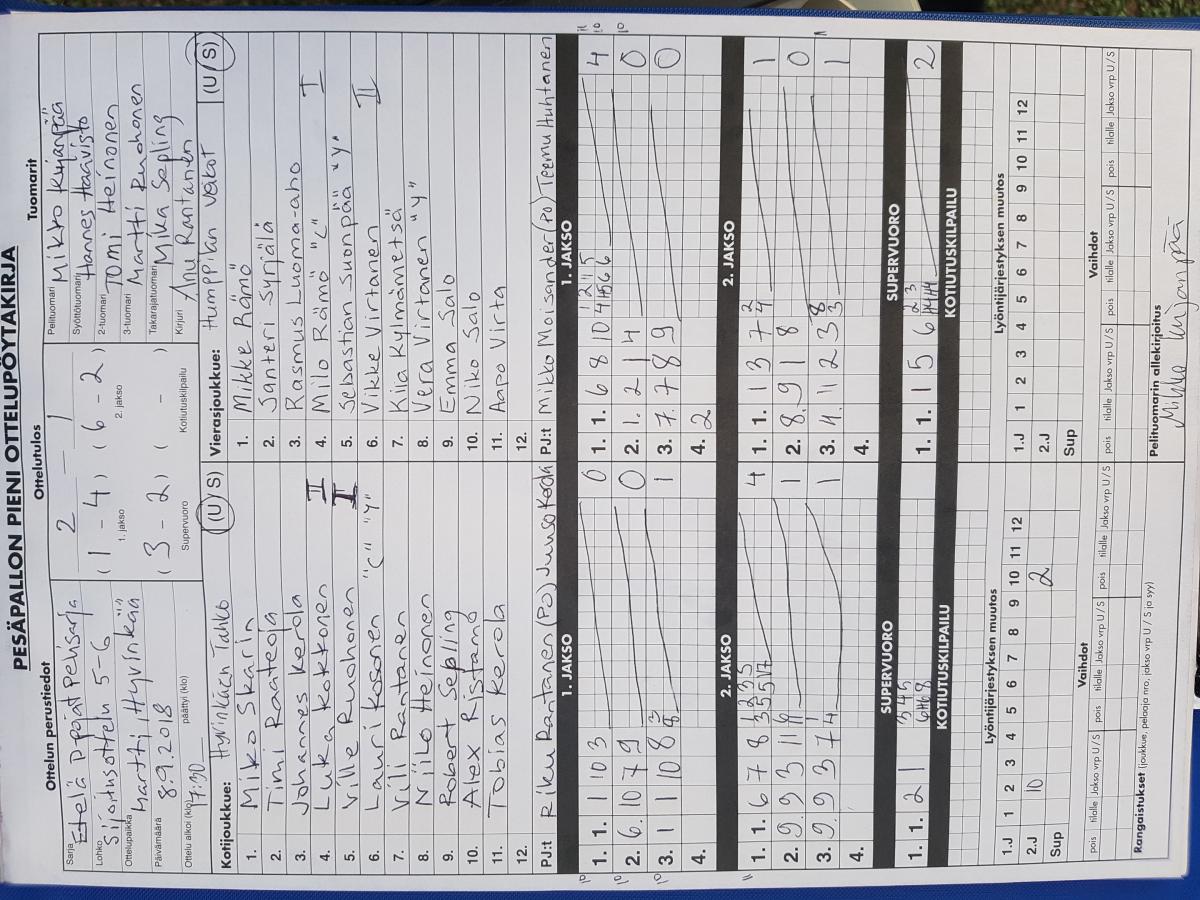 PESÄPALLON PIENI OTTELUPÖYTÄKIRJA
Ottelun perustiedot
Sarja Etelä D-pojat Pehisarja
Lohko Sijoitusottelu 5-6
Ottelupaikka Martti, Hyvinkää
Päivämäärä 8.9.2018
Ottelu alkoi (klo) 17:30 päättyi (klo)
Ottelutulos
2 — 1
( 1 - 4 ) ( 6 - 2 )
1. jakso 2. jakso
( 3 - 2 ) ( - )
Supervuoro Kotiutuskilpailu
Tuomarit
Pelituomari Mikko Kujanpää
Syöttötuomari Hannes Haavisto
2-tuomari Tomi Heinonen
3-tuomari Martti Ruohonen
Takarajatuomari Mika Sepling
Kirjuri Anu Rantanen
Kotijoukkue: Hyvinkään Tahko (U/S)
1. Miko Skarin
2. Timi Raateoja
3. Johannes Kerola
4. Luka Kokkonen II
5. Ville Ruohonen I
6. Lauri Kosonen "C" "Y"
7. Vili Rantanen
8. Niilo Heinonen
9. Robert Sepling
10. Alex Ristamo
11. Tobias Kerola
12.
PJ:t Riku Rantanen (PO) Juuso Kerola
Vierasjoukkue: Humppilan Veikot (U/S)
1. Mikke Rämö
2. Santeri Syrjälä
3. Rasmus Luoma-aho
4. Milo Rämö "C" I
5. Sebastian Suonpää "Y"
6. Vikke Virtanen II
7. Kiia Kylmämetsä
8. Vera Virtanen "Y"
9. Emma Salo
10. Niko Salo
11. Aapo Virta
12.
PJ:t Mikko Moisander (PO) Teemu Huhtanen
1. JAKSO
1. 1. 1 10 3 0
2. 6. 10 7 9 0
3. 1 1 10 8 1
4.
2. JAKSO
1. 1. 6 7 8 4
2. 9. 9 3 11 1
3. 9. 9 3 7 1
4.
SUPERVUORO
1. 1. 2 1
KOTIUTUSKILPAILU
Lyöntijärjestyksen muutos
1.J 1 2 3 4 5 6 7 8 9 10 11 12
2.J 10 2
Sup
Vaihdot
pois tilalle Jakso vrp U / S pois tilalle Jakso vrp U / S pois tilalle Jakso vrp U / S
Rangaistukset (joukkue, pelaaja nro, jakso vrp U / S ja syy)
1. JAKSO
1. 1. 6 8 10 4
2. 1. 2 1 4 0
3. 7. 7 8 9 0
4. 2
2. JAKSO
1. 1. 1 3 7 1
2. 8. 9 1 8 0
3. 4. 11 2 3 1
4.
SUPERVUORO
1. 1. 1 5 6 2
KOTIUTUSKILPAILU
Lyöntijärjestyksen muutos
1.J 1 2 3 4 5 6 7 8 9 10 11 12
2.J
Sup
Vaihdot
pois tilalle Jakso vrp U / S pois tilalle Jakso vrp U / S pois tilalle Jakso vrp U / S
Pelituomarin allekirjoitus
Mikko Kujanpää